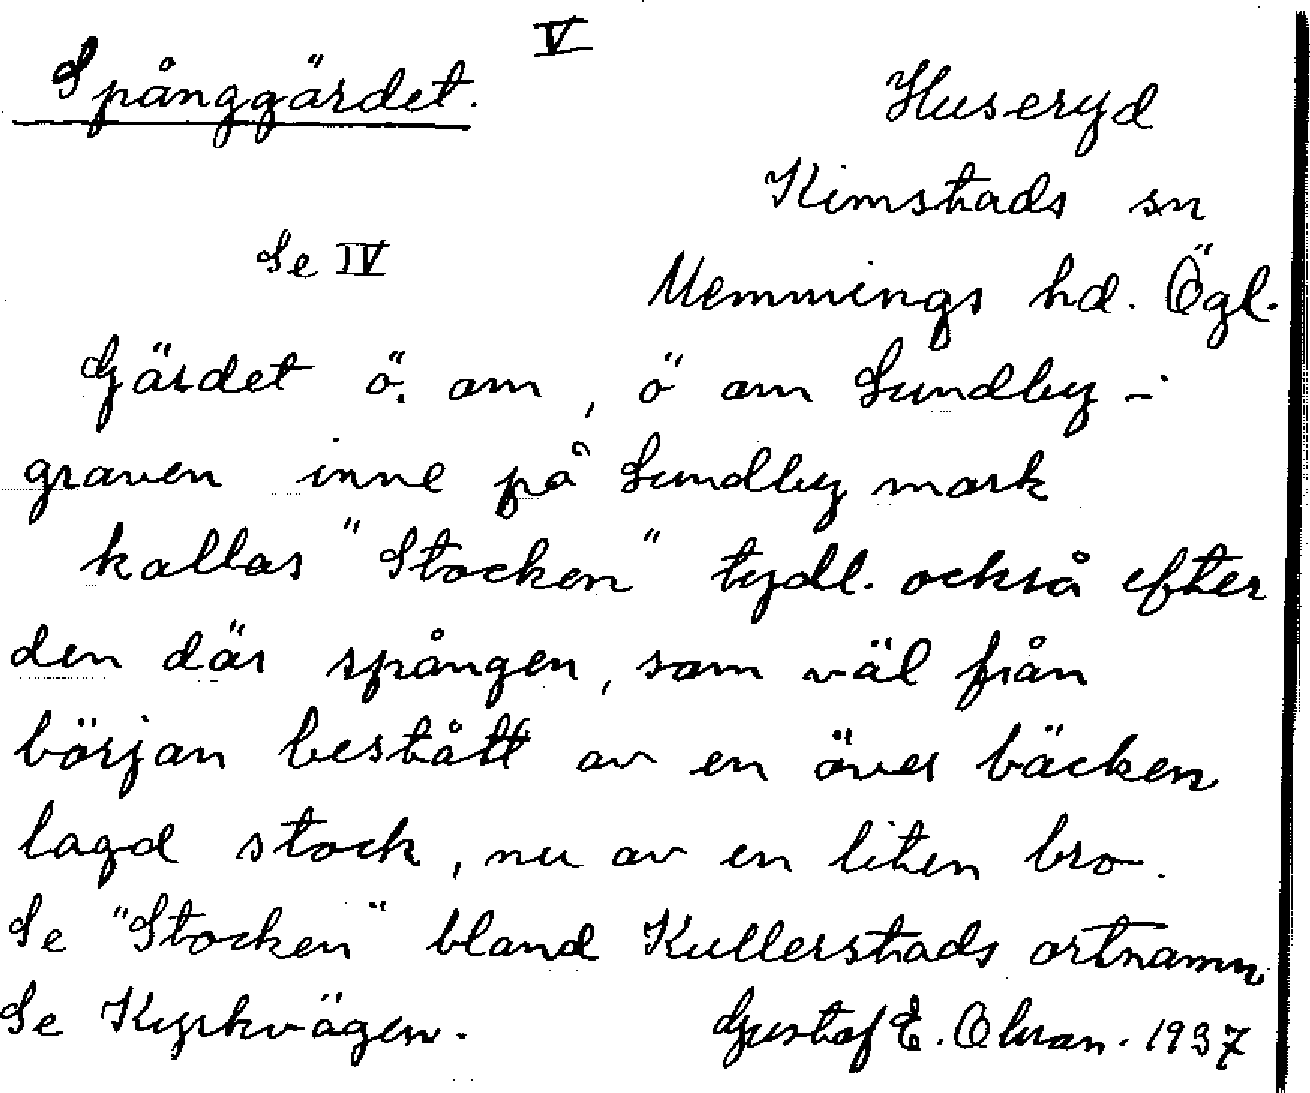 V
Spånggärdet.
Huseryd
Kimstads sn
Se IV
Memmings hd. Ögl.
Gärdet ö. om, ö om Sundby-
graven inne på Sundby mark
kallas "Stocken" tydl. också efter
den där spången, som väl från
början bestått av en över bäcken
lagd stock, nu av en liten bro.
Se "Stocken" bland Kullerstads ortnamn
Se Kyrkvägen.
Gustaf E. 1937